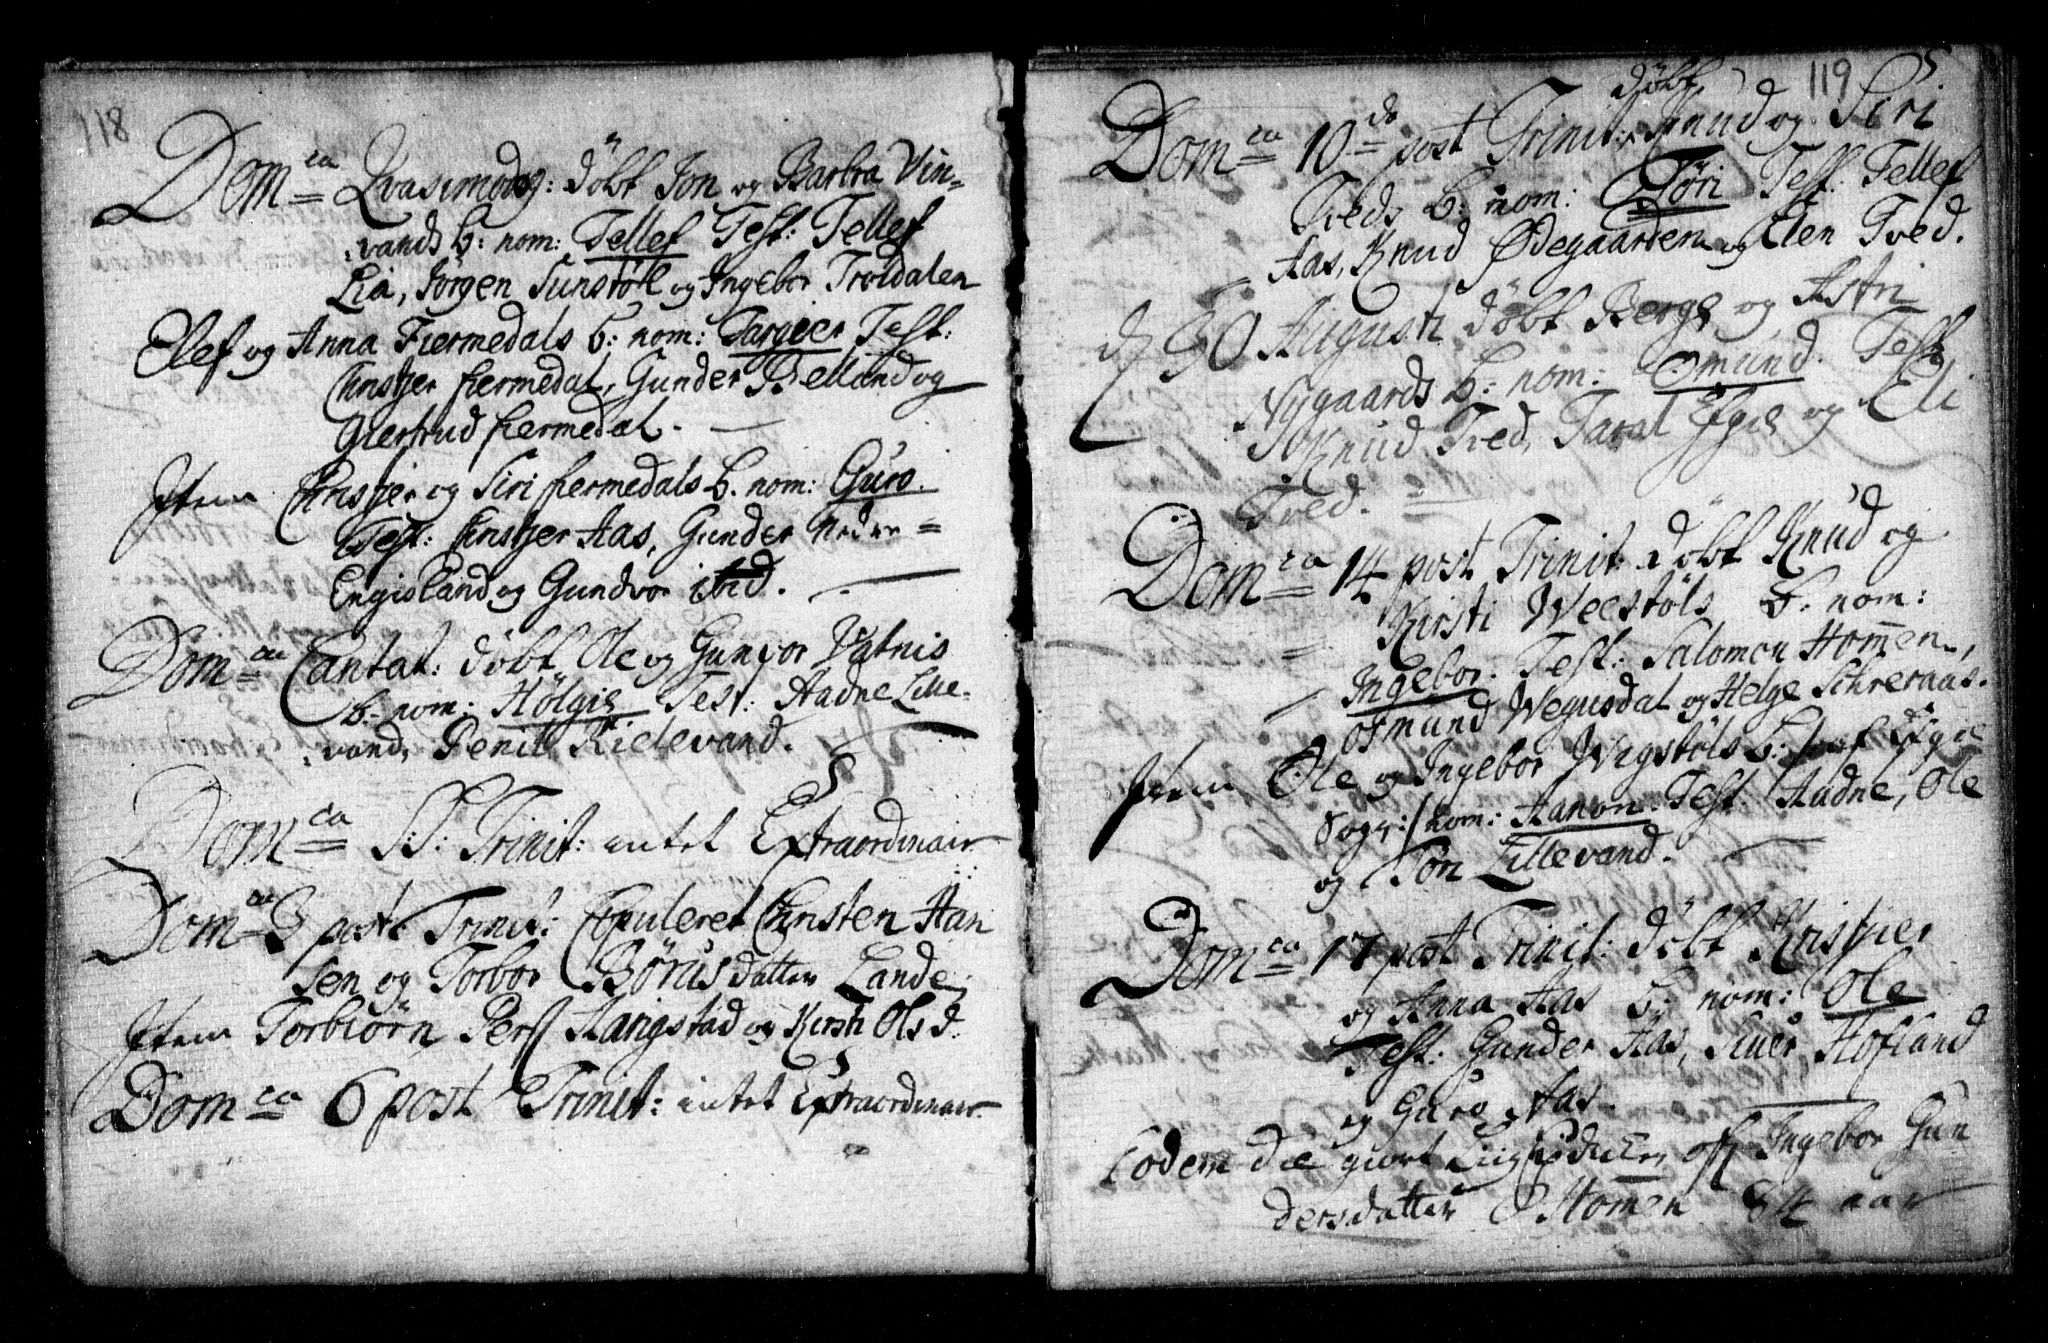 118
Dom:ca Qvasimodog: döbt Jon og Barbra Vin-
vands b: nom: Tellef Test: Tellef
Lia, Jörgen Sunstöll og Ingebor Troldalen
Elef og Anna Fiermedals b: nom: Targier Test:
Christjer fiermedal, Gunder Belland og
Giertrud fiermedal.
Item Christjer og Siri fiermedals b. nom: Guro.
Test: Christjer Aas, Gunder Neder=
Engisland og Gundvor ibid.
Dom:ca Cantat: döbt Ole og Gunvor Vatnis
b: nom: Hölgie Test: Aadne Lille-
vand, Penil Kielevand.
Dom:ca SS: Trinit: intet Extraordinair
Dom:ca 3 post Trinit: Copuleret Christen Han
sen og Torbor Börusdatter Lande,
Item Torbiörn Pers Haugstad og Kirsti Olsd.
Dom:ca 6 post Trinit: intet Extraordinair
119
Dom:ca 10de post Trinit: döbt Knud og Siri
Treds b: nom: Töri Test: Tellef
Aas, Knud Ödegaarden og Elen Tved.
d 30 Augusti döbt Berge og Astri
Nygaards b: nom: Omund. Test
Knud Tved, Taral Egie og Eli
Tved.
Dom:ca 14 post Trinit: döbt Knud og
Kirsti Weestöls b: nom:
Ingebor. Test: Salomon Homen,
Osmund Wegusdal og Helge Schreraas.
Item Ole og Ingebor Wigstöls b: / af Egie
Sogn:/ nom: Aanon. Test. Aadne, Ole
og Töri Lillevand.
Dom:ca 17 post Trinit: döbt Kristjer
og Anna Aas b: nom: Ole
Test: Gunder Aas, Siuer Hofland
og Guro Aas.
Eodem die giort Liigprædiken off Ingebor Gun
dersdatter Homen 84 aar